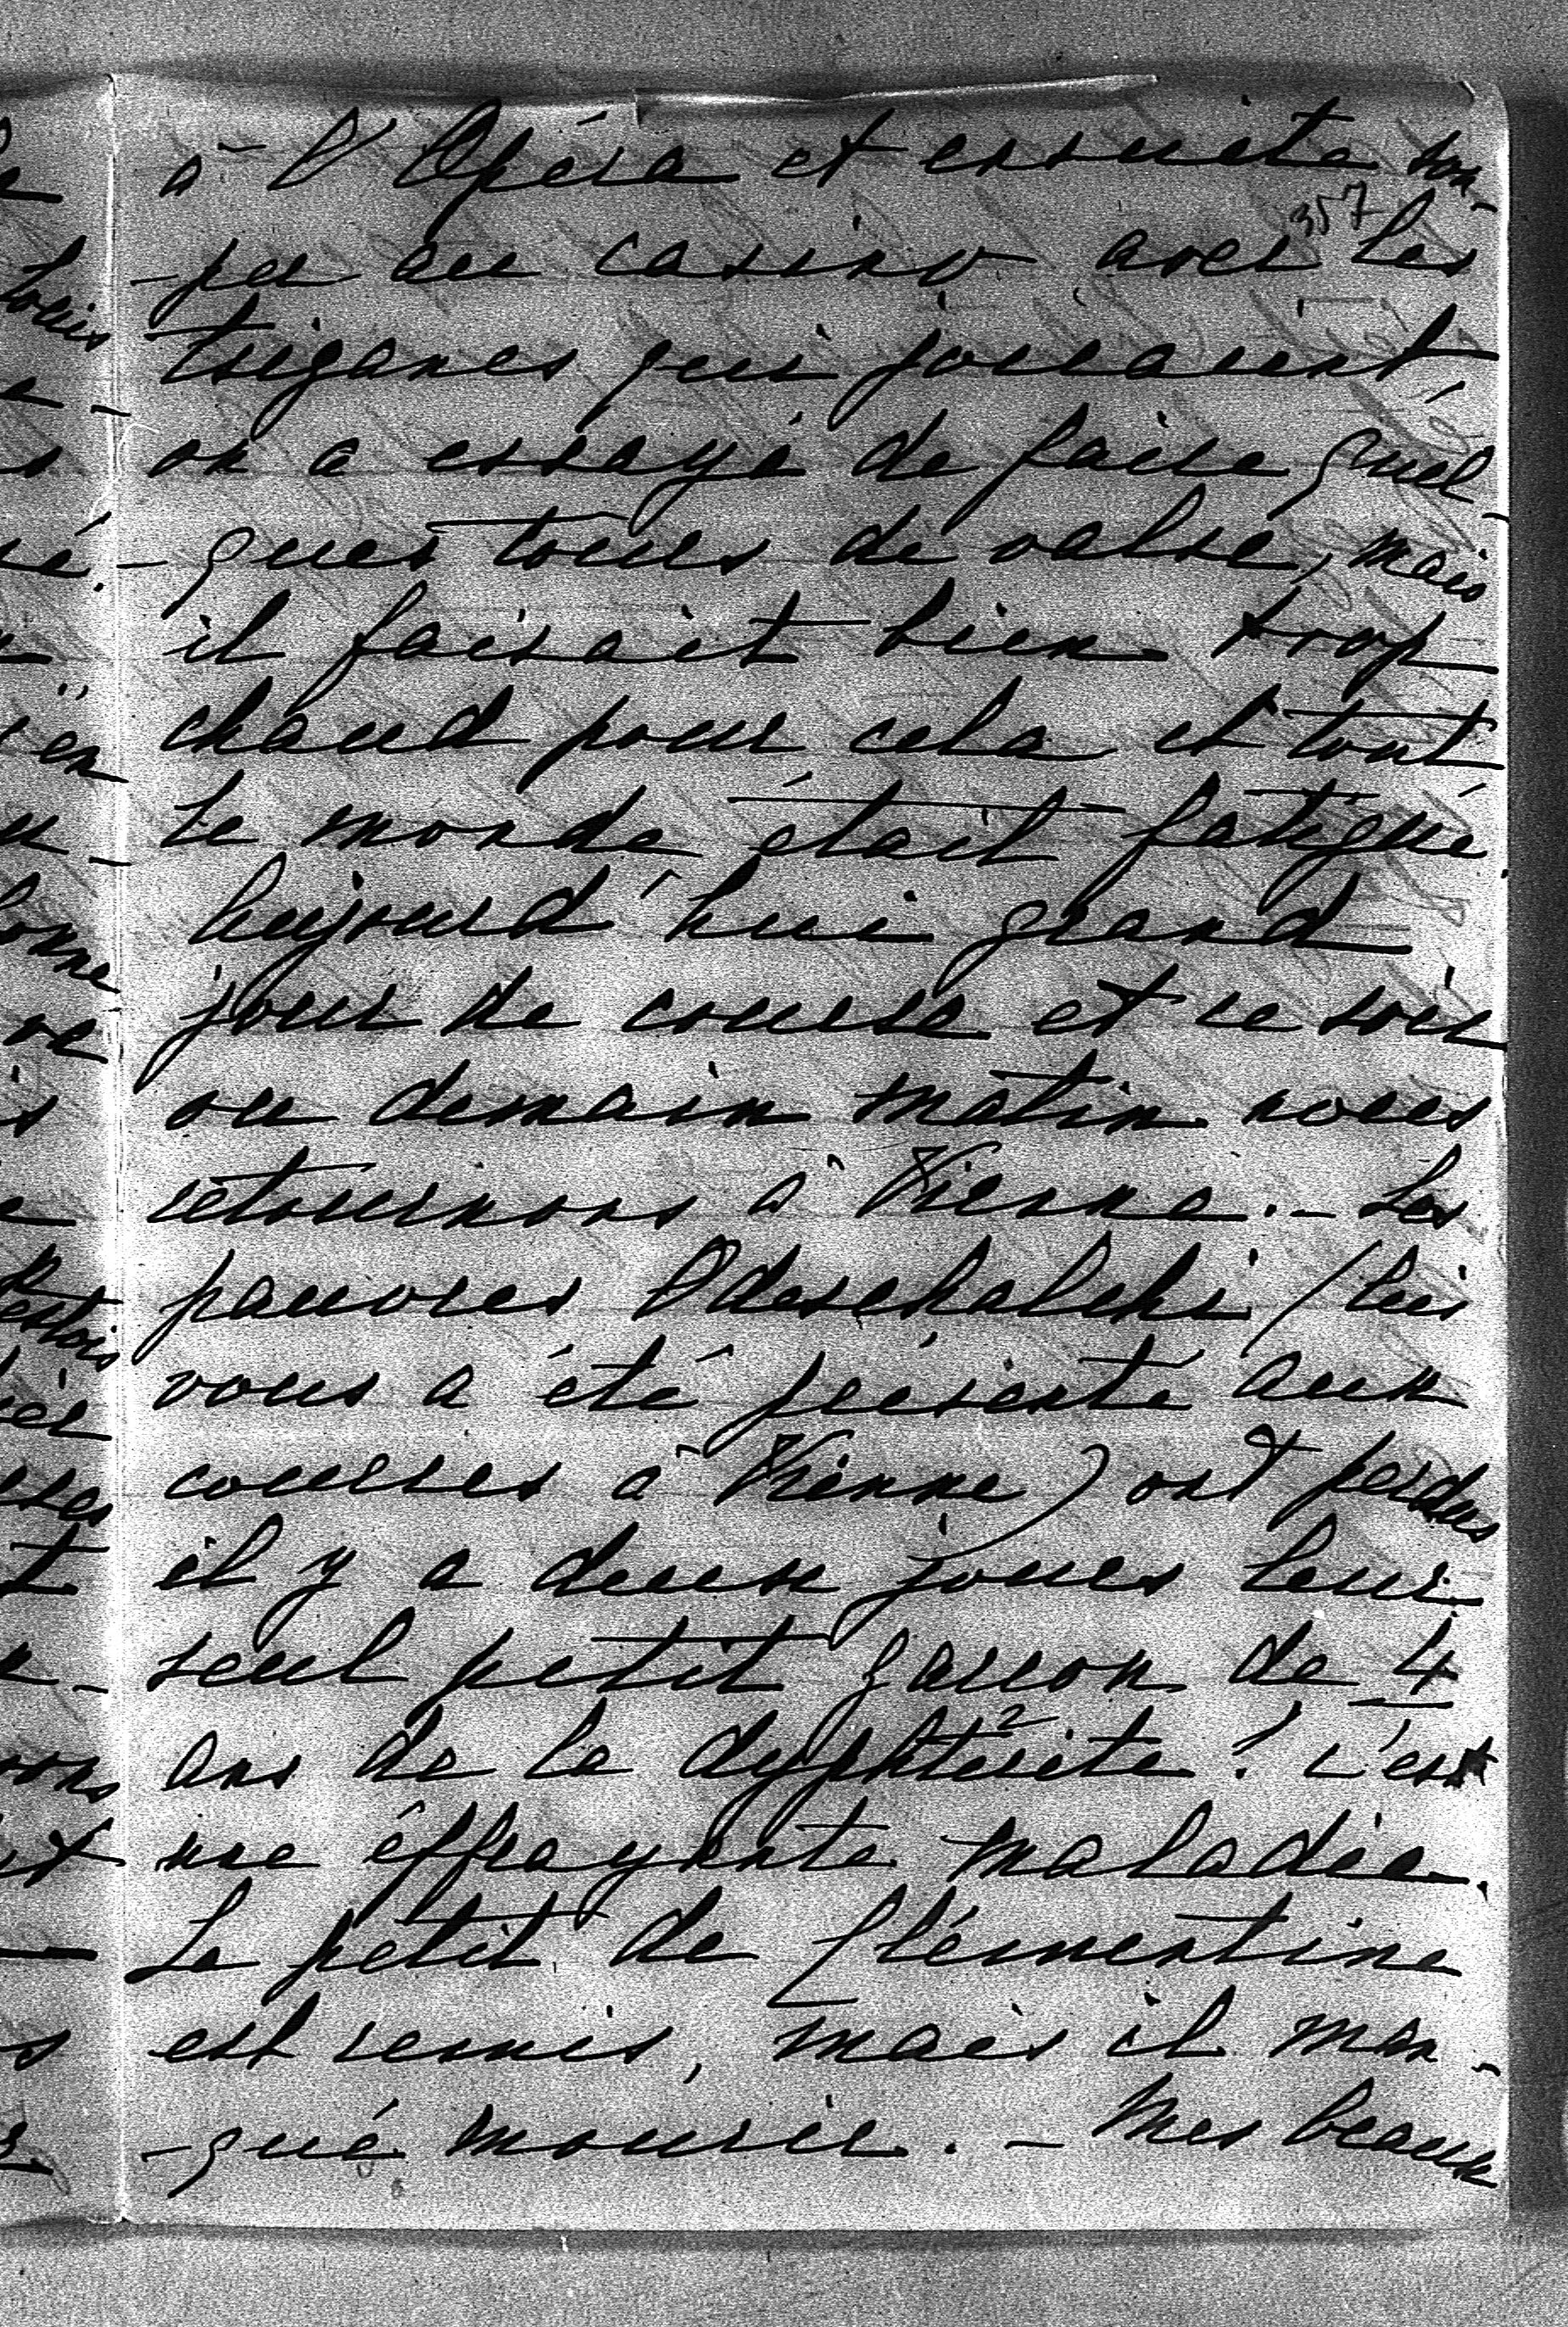 à l'Opéra et ensuite sou-
357
-pé au casino avec les
tsiganes qui jouaient,
on a essayé de faire quel-
-ques tours de valse, mais
il faisait bien trop
chaud pour cela et tout
le monde était fatigué.
Aujourd'hui grand
jour de course et ce soir
ou demain matin nous
retournons à Vienne. - Les
pauvres Odeschalchi (lui
vous a été présenté aux
courses à Vienne) ont perdus
il y a deux jours leur
seul petit garçon de 4
ans de la dyphtérite! c'est
une éffrayante maladie.
Le petit de Clémentine
est remis, mais il man-
-qué mourir. - Mes beaux